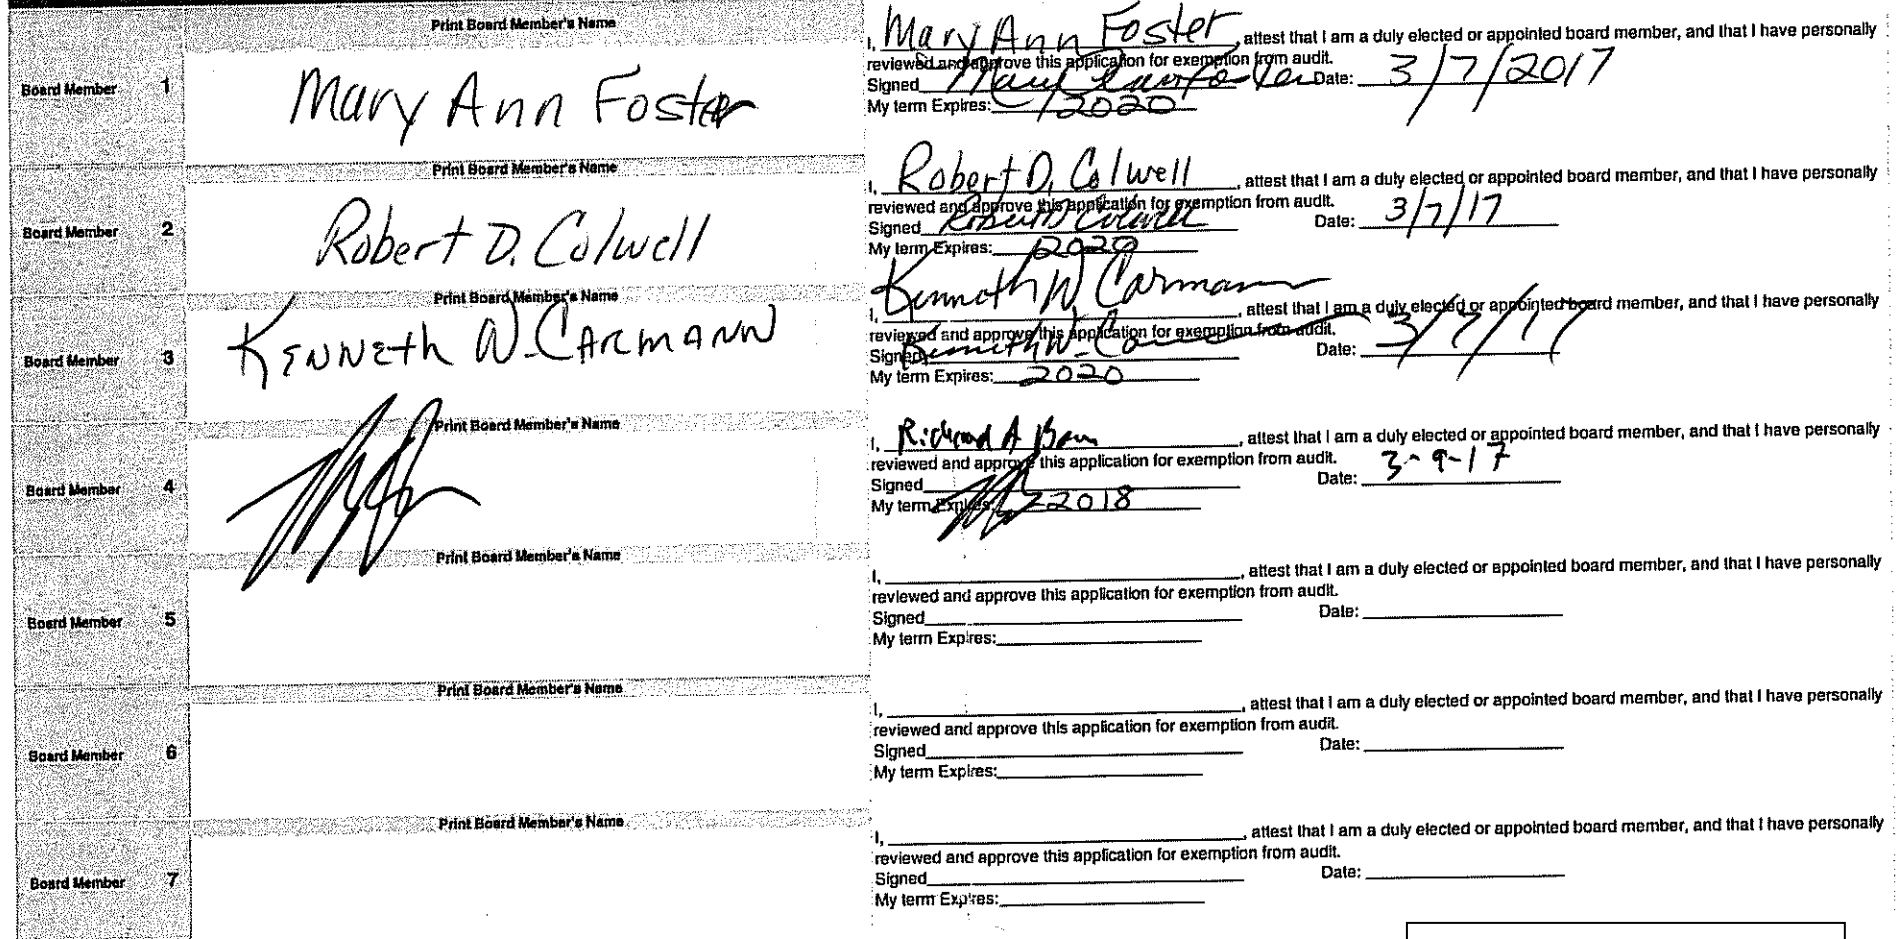 Print Board Member's Name
Board Member 1
Mary Ann Foster
I, Mary Ann Foster, attest that I am a duly elected or appointed board member, and that I have personally
reviewed and approve this application for exemption from audit.
Signed Mary Ann Foster Date: 3/7/2017
My term Expires: 2020
Print Board Member's Name
Board Member 2
Robert D. Colwell
I, Robert D. Colwell, attest that I am a duly elected or appointed board member, and that I have personally
reviewed and approve this application for exemption from audit.
Signed Robert D Colwell Date: 3/7/17
My term Expires: 2020
Print Board Member's Name
Board Member 3
KENNETH W. CARMANN
I, Kenneth W Carmann, attest that I am a duly elected or appointed board member, and that I have personally
reviewed and approve this application for exemption from audit.
Signed Kenneth W. Date: 3/7/17
My term Expires: 2020
Print Board Member's Name
Board Member 4
I, Richard A, attest that I am a duly elected or appointed board member, and that I have personally
reviewed and approve this application for exemption from audit.
Signed Date: 3-9-17
My term Expires: 2018
Print Board Member's Name
Board Member 5
I, , attest that I am a duly elected or appointed board member, and that I have personally
reviewed and approve this application for exemption from audit.
Signed Date:
My term Expires:
Print Board Member's Name
Board Member 6
I, , attest that I am a duly elected or appointed board member, and that I have personally
reviewed and approve this application for exemption from audit.
Signed Date:
My term Expires:
Print Board Member's Name
Board Member 7
I, , attest that I am a duly elected or appointed board member, and that I have personally
reviewed and approve this application for exemption from audit.
Signed Date:
My term Expires: